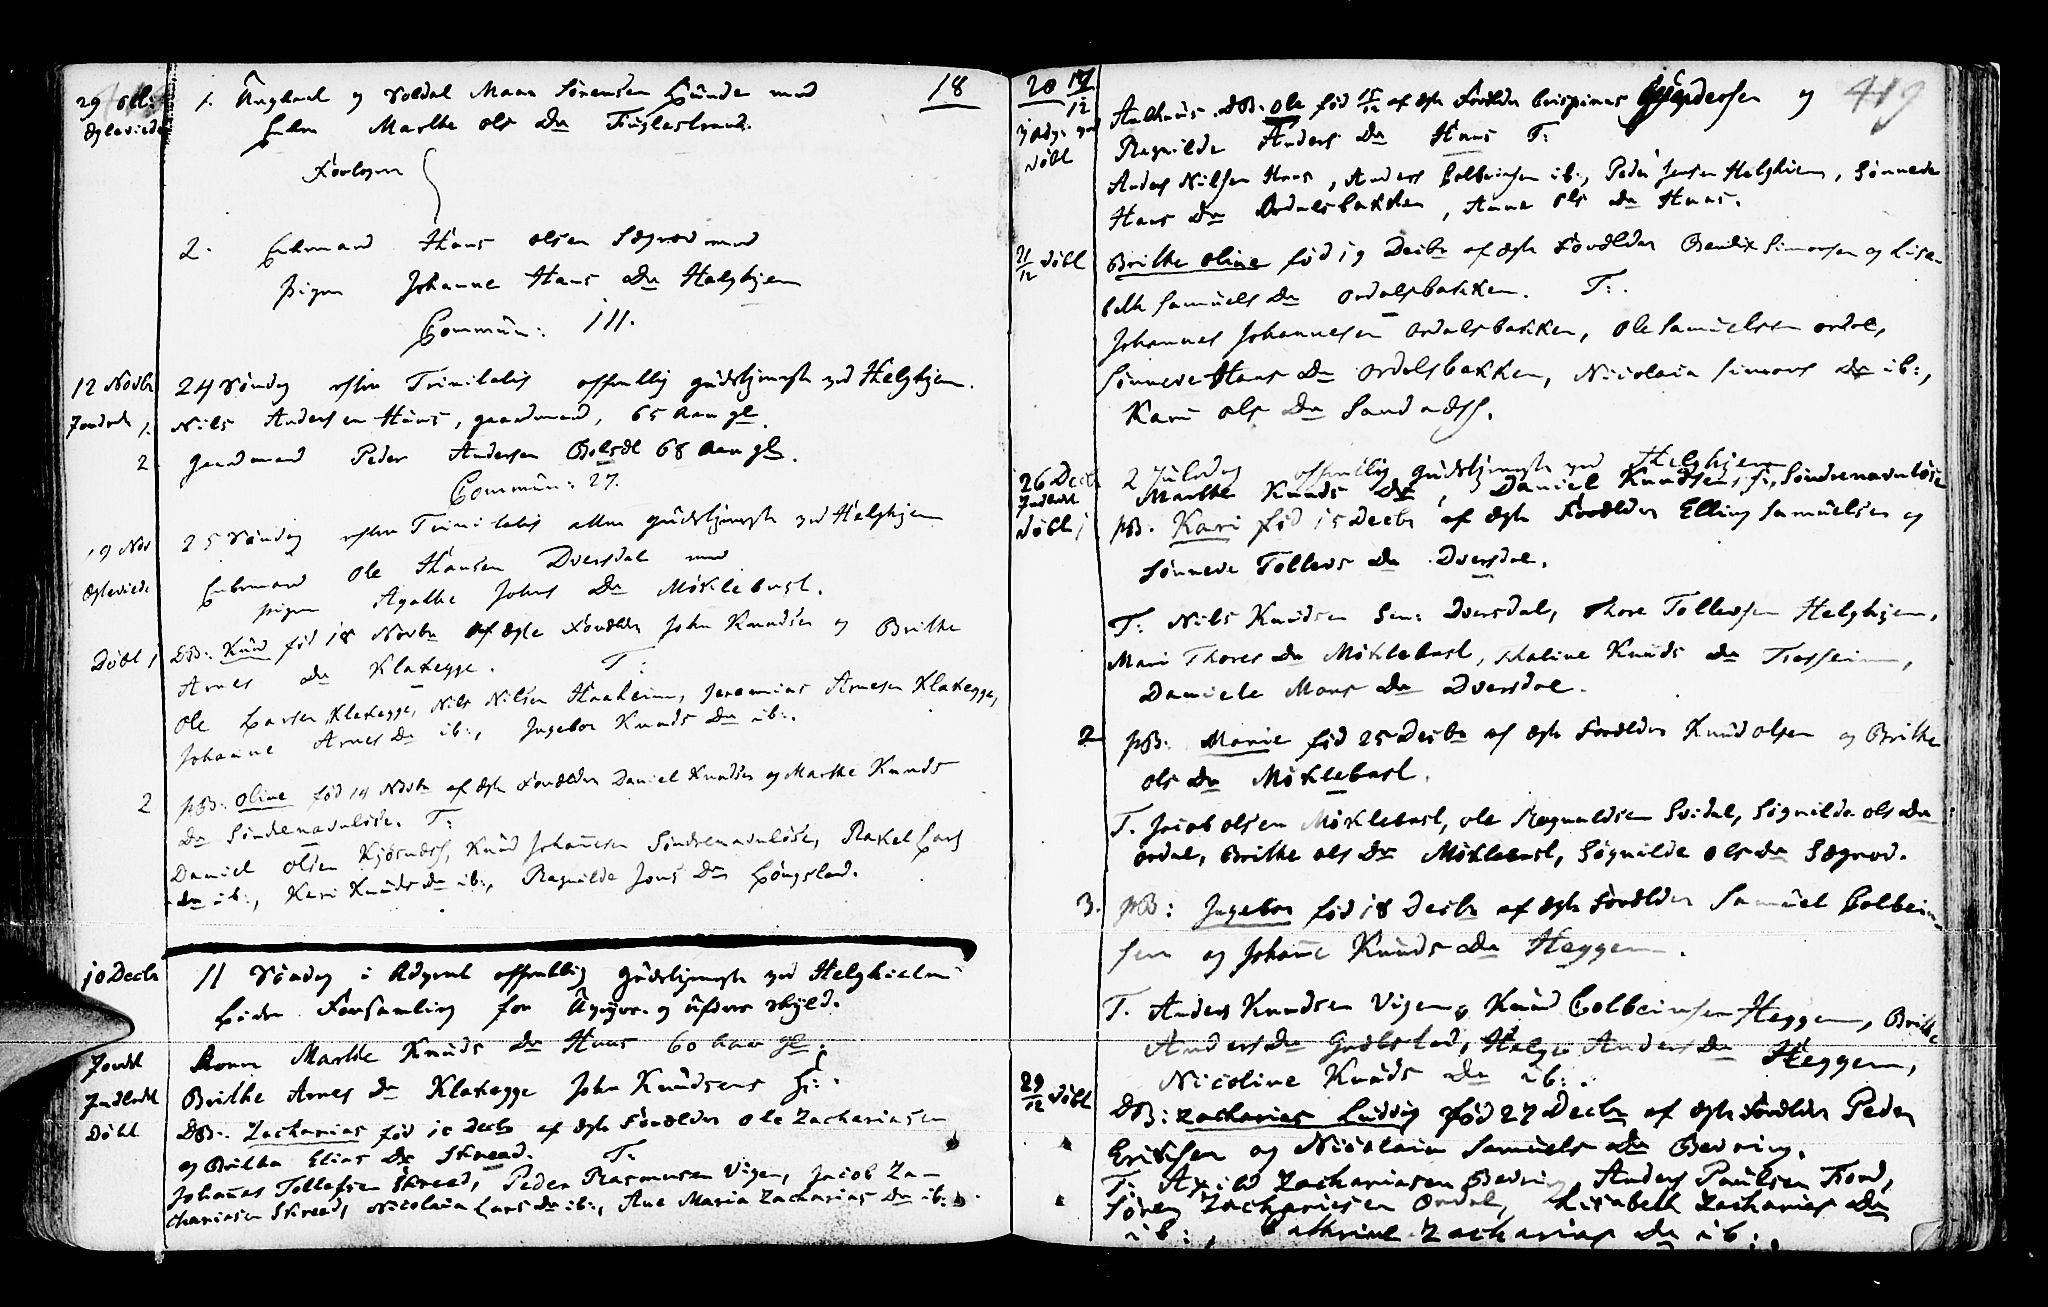 29 Oct: 1. Ungkarl og Soldat Mons Sørensen Hunde med 18
Ægteviede Enken Marthe Ols Dr Fuglestrand.
Forlover
2. Enkmand Hans Olsen Sægrov med
pigen Johanne Hans Dr Helghjem
Commun: 111.
12 Novbr 24 Søndag efter Trinitatis offentlig gudstjeneste ved Helghjem.
Jordede 1. Nils Andersen Huus, gaardmand, 65 Aar gl.
2. Gaardmand Peder Andersen 68 Aar gl.
Commun: 27.
19 Nov 25 Søndag efter Trinitatis atter gudstjeneste ved Helghjem
Ægteviede Enkemand Ole Hansen Dversdal med
pigen Agathe Johns Dr Møklebust.
Døbt 1 DB: Knud fød 18 Novbr af ægte Forældre John Knudsen og Brithe
Arnes Dr Klakegge. T:
Ole Larsen Klakegge, Nils Nilsen Haaheim, Jeremias Arnesen Klakegge,
Johanne Arnes Dr ib:, Ingebor Knuds Dr ib:.
2 pB: Oline fød 14 Novbr af ægte Forældre Daniel Knudsen og Marthe Knuds
Dr Søndrenavnløse. T:
Daniel Olsen Kjøsnæss, Knud Johannesen Søndrenavnløse, Rakel Lars
Dr ib:, Kari Knuds Dr ib:, Ragnilde Jons Dr
10 Decbr 11 Søndag i Advent offentlig gudstjeneste ved Helghielm
liden Forsamling for og skyld.
Jordet Konen Marthe Knuds Dr Huus 60 Aar gl:
Indledt Brithe Arnes Dr Klakegge John Knudsens H:.
Døbt DB: Zacharias fød 10 Decbr af ægte Forældre Ole Zachariasen
og Britha Elias Dr Skreed. T:
Johannes Tollefsen Skreed, Peder Rasmusen Vigen, Jacob Za-
chariasen Skreed, Nicolaia Lars Dr ib:, Ane Maria Zacharias Dr ib:
20 17 419
17/12 3 Adv: Aalhuus. DB: Ole fød 15/12 af ægte Forældre Crispinus og
Døbt Ragnilde Anders Dr Huus T:
Anders Nilsen Huus, Anders Colbeinsen ib:, Peder Jensen Helghiem, Sønneve
Hans Dr Ordalsbakken, Anne Ols Dr Huus.
21/12 Døbt Brithe Oline fød 19 Decbr af ægte Forældre Bendix Simonsen og Lisa-
beth Samuels Dr Ordalsbakken. T:.
Johannes Johannesen Ordalsbakken, Ole Samuelsen Ordal,
Sønneve Hans Dr Ordalsbakken, Nicolaia Simons Dr ib:,
Kari Ols Dr Sandnæss.
26 Decbr 2 Juledag offentlig gudstjeneste ved Helghjem
Indledt Marthe Knuds Dr, Daniel Knudsens H:, Søndrenavnløse
Døbt 1 pB: Kari fød 15 Decbr af ægte Forældre Elling Samuelsen og
Sønneve Tollevs Dr Dversdal.
T: Nils Knudsen Sen: Dversdal, Thore Tollevsen Helghjem,
Mari Thores Dr Møklebust, Maline Knuds Dr
Daniele Mons Dr Dversdal.
2 pB: Marie fød 25 Decbr af ægte Forældre Knud Olsen og Brithe
Ols Dr Møklebust.
T. Jacob Olsen Møklebust, Ole Ragnvaldsen Svidal, Søgnilda Ols Dr
Ordal, Brithe Ols Dr Møklebust, Søgnilde Ols Dr Sægrov.
3. pB: Ingebor fød 18 Decbr af ægte Forældre Samuel Colbein-
sen og Johanne Knuds Dr Heggem.
T. Anders Knudsen Vigen, Knud Colbeinsen Heggem, Brithe
Anders Dr, Helge Anders Dr Heggem,
Nicoline Knuds Dr ib:.
29/12 Døbt DB: Zacharias Ludvig fød 27 Decbr af ægte Forældre Peder
Erichsen og Nicolaia Samuels Dr Bevring.
T: Axild Zachariasen Bevring, Anders Paulsen Fiord,
Søren Zachariesen Ordal, Lisabeth Zacharias Dr
ib:, Cathrine Zacharias Dr ib:.